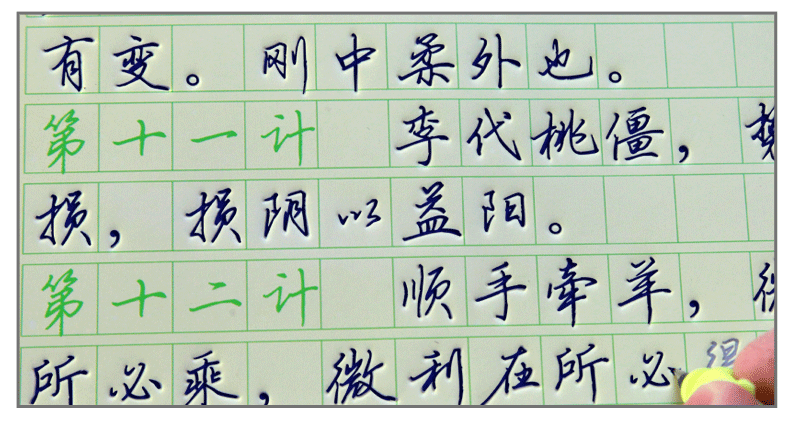 有变。刚中柔外也。
第十一计 李代桃僵，
损，损阴以益阳。
第十二计 顺手牵羊，微
所必乘，微利在所必得